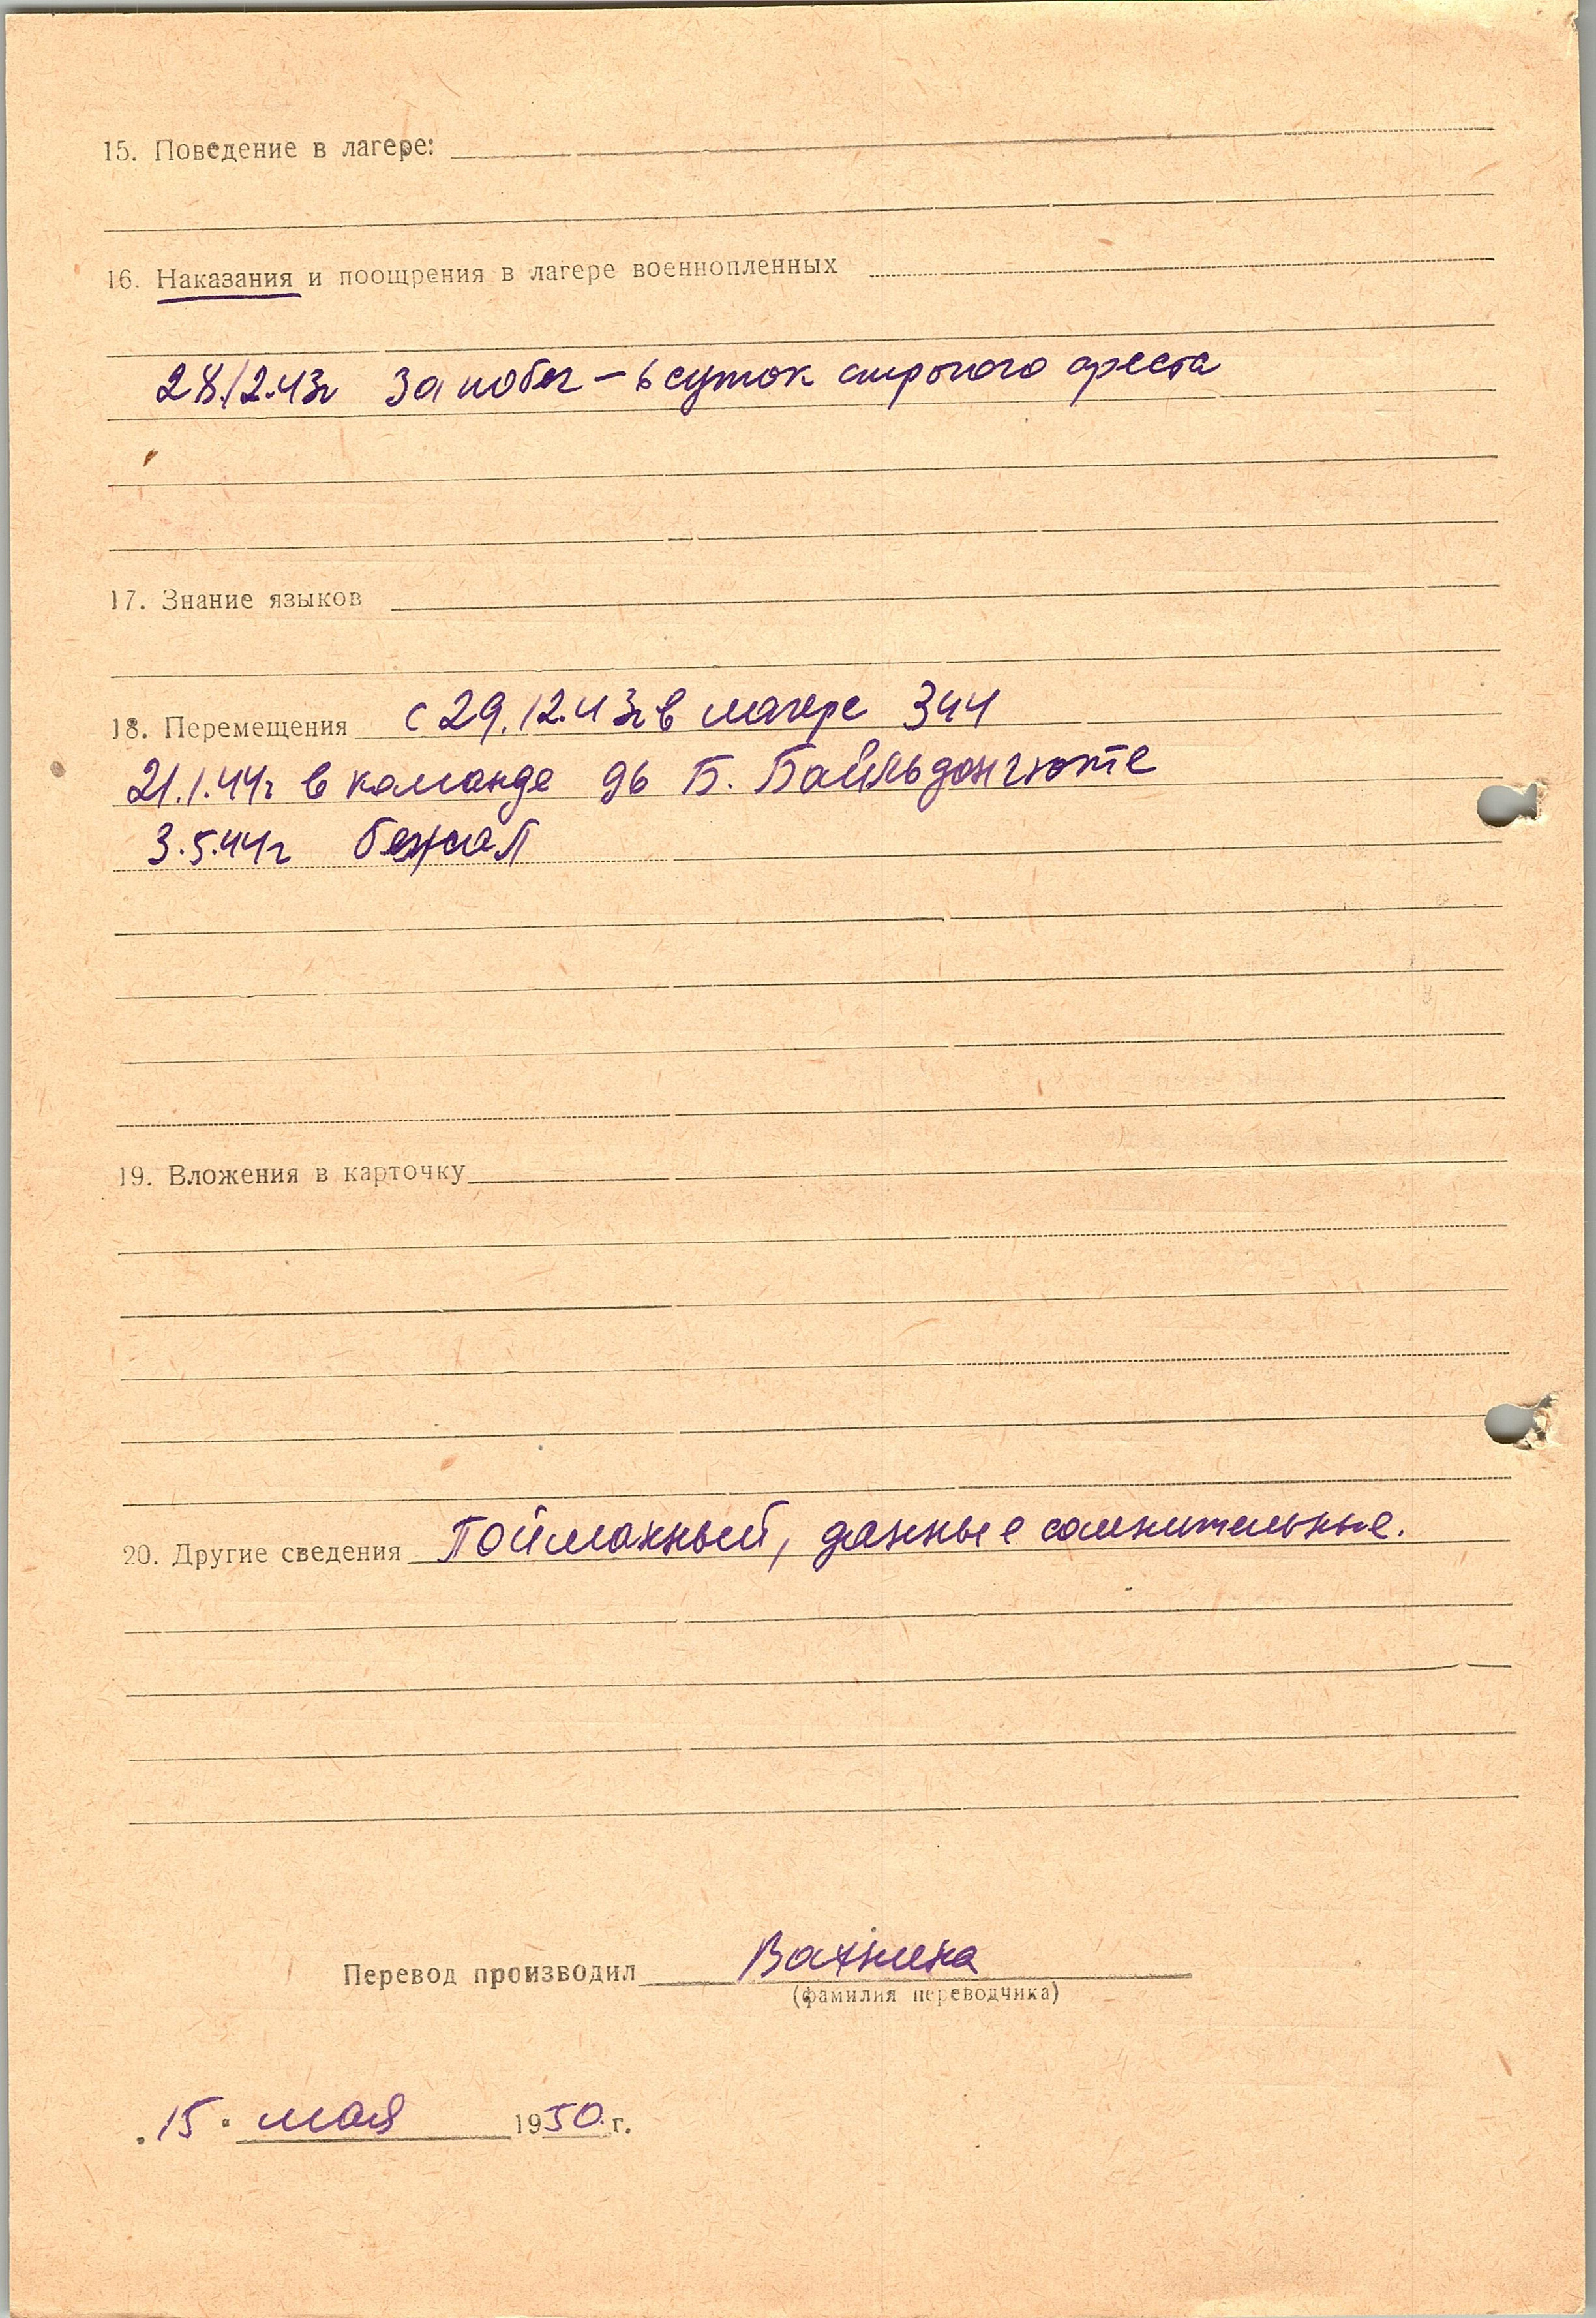 15. Поведение в лагере:
16. Наказания и поощрения в лагере военнопленных
28.12.43г За побег – 6 суток строгого ареста
17. Знание языков
18. Перемещения с 29.12.43г в лагере 344
21.1.44г в команде
3.5.44г бежал
19. Вложения в карточку
20. Другие сведения Пойманный, данные сомнительные.
Перевод производил
(фамилия переводчика)
„15“ мая 1950 г.